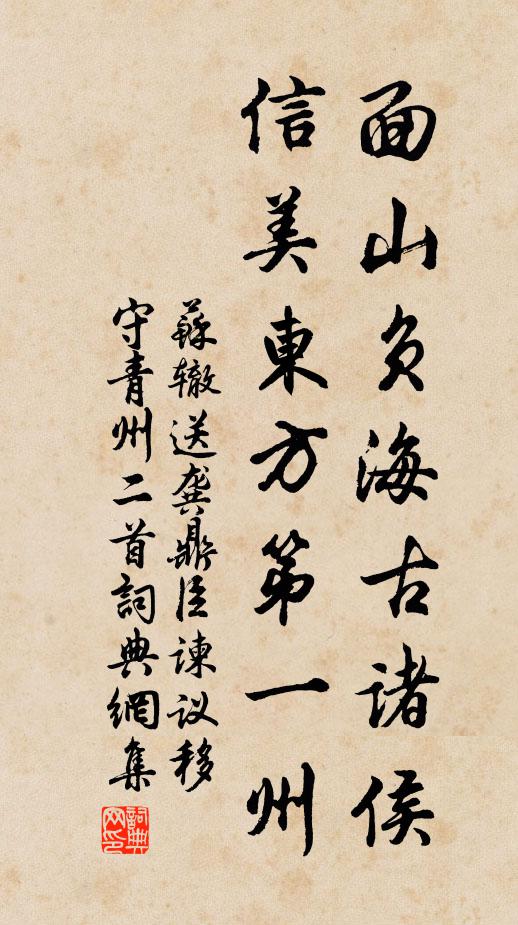 面山負海古諸侯
信美東方第一州
蘇辙送龚鼎臣諫议移
守青州二首詞典網集
詞典
网印